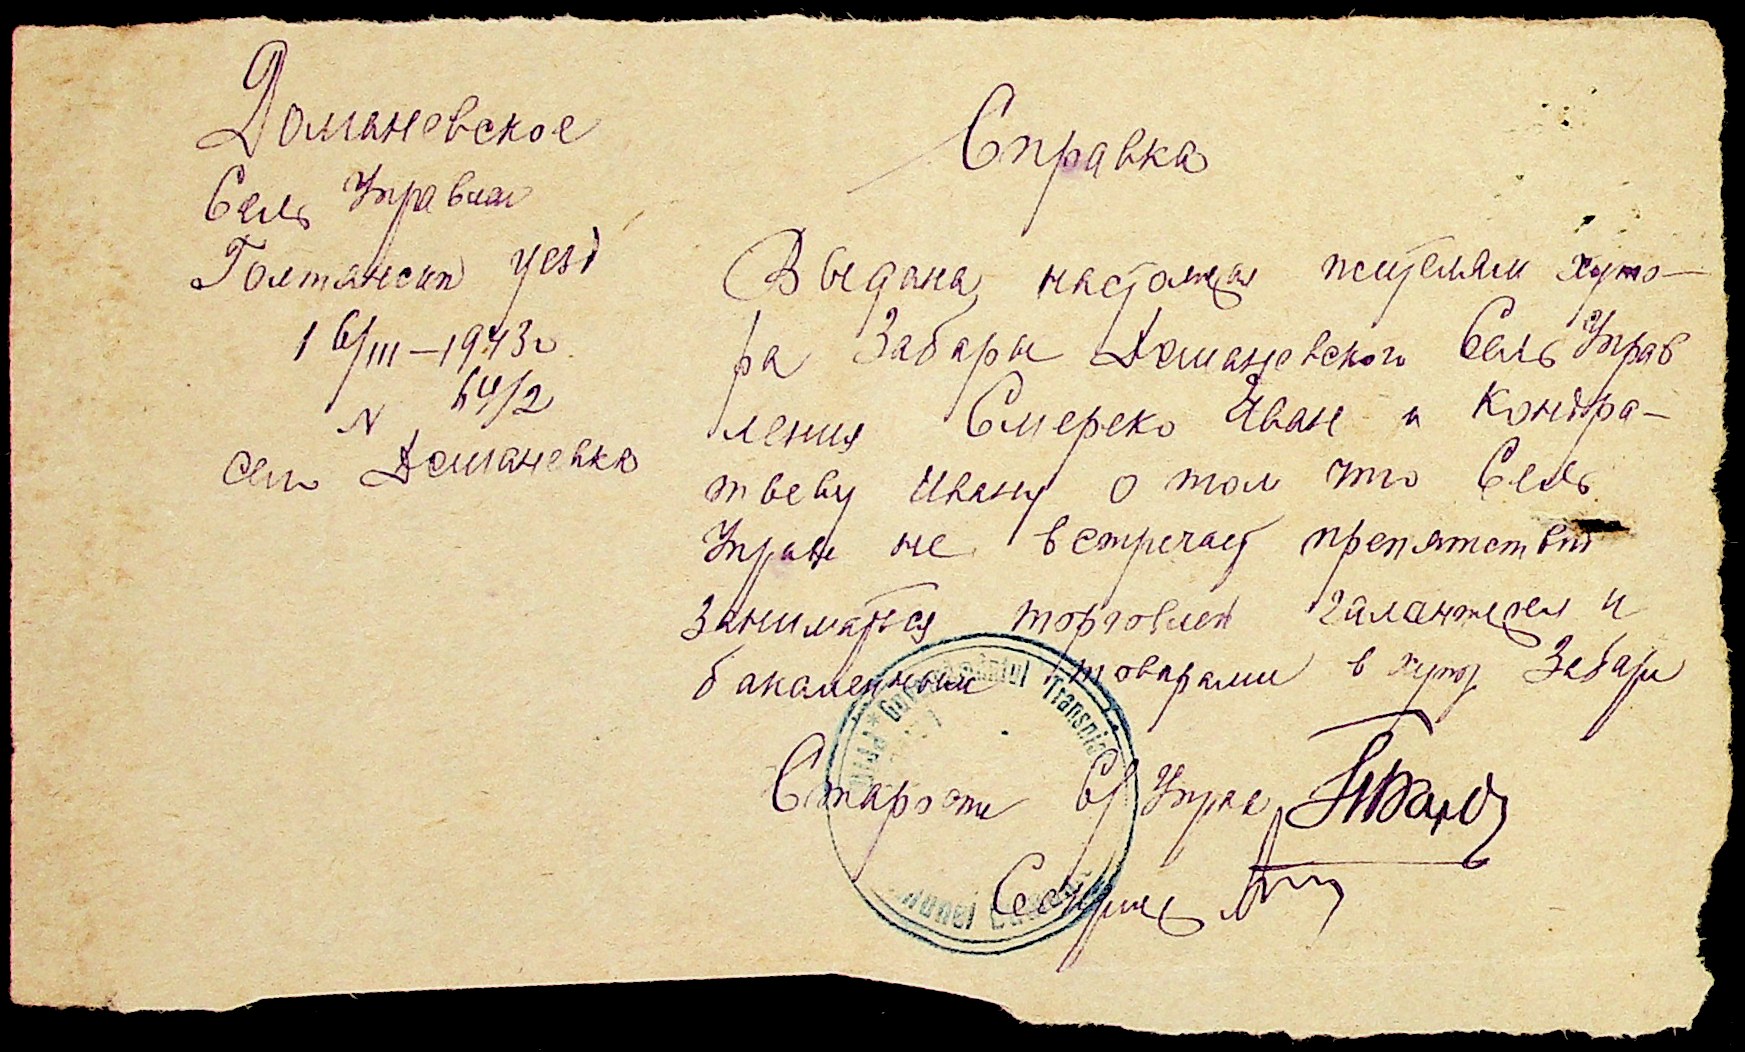 Доманевское
Сель Управлен
Голтянски уезд
16/III – 1943 г
N 64/2
село Доманевка
Справка
Выдана настоящая жителям хуто-
ра Забары Доманевского Сель Управ
ления Смереко Иван и Кондра-
тьеву Ивану о том что Сель
Управ не встречает препятствий
заниматься торговлей галантерея и
бакалейными товарами в хутор Забары
Староста С/Управ
Секретарь
Guvernământul Transnis